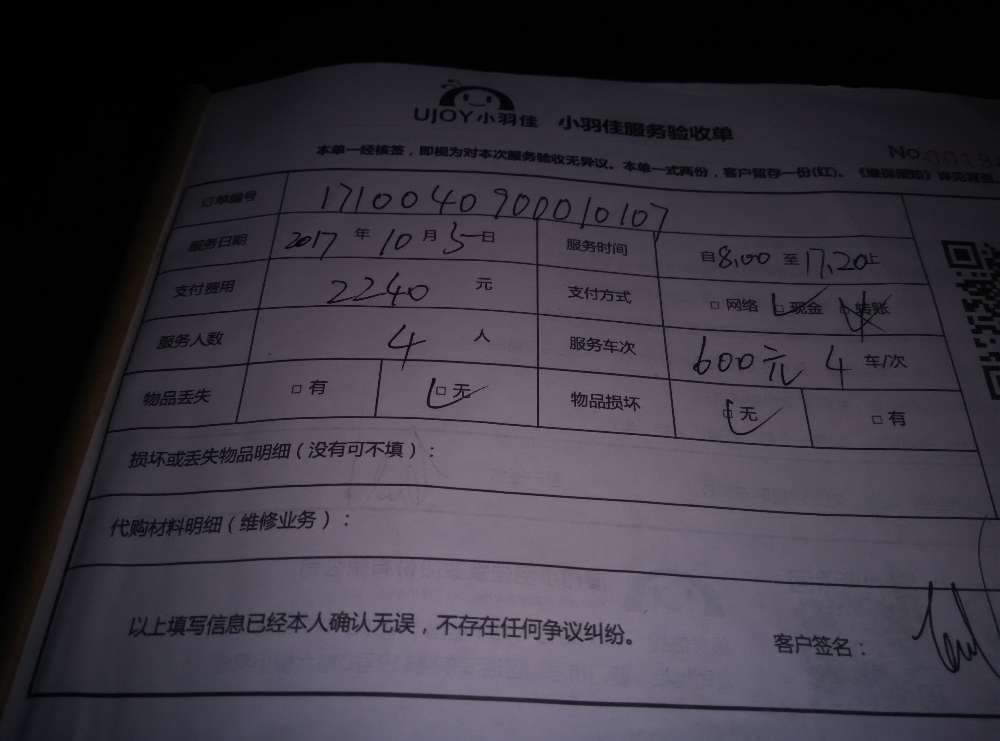 UJOY小羽佳 小羽佳服务验收单
No.
本单一经核签，即视为对本次服务验收无异议。本单一式两份，客户留存一份(红)。
订单编号 17100409000010107
服务日期 2017 年 10 月 5 日 服务时间 自 8:00 至 17:20 止
支付费用 2240 元 支付方式 □ 网络 □ 现金 □ 转账
服务人数 4 人 服务车次 600元 4 车/次
物品丢失 □ 有 □ 无 物品损坏 □ 无 □ 有
损坏或丢失物品明细（没有可不填）：
代购材料明细（维修业务）：
以上填写信息已经本人确认无误，不存在任何争议纠纷。 客户签名：